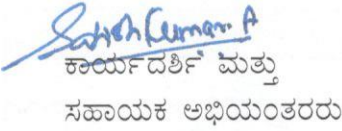 Satish Kumar. A
ಕಾರ್ಯದರ್ಶಿ ಮತ್ತು
ಸಹಾಯಕ ಅಭಿಯಂತರರು